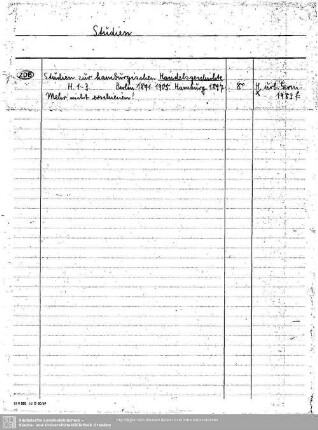 Studien
ZDB Studien zur hamburgischen Handelsgeschichte
H. 1-3 Berlin 1891 1905 Hamburg 1897 8°
Mehr nicht erschienen!
1983
Sächsische Landesbibliothek -
Staats- und Universitätsbibliothek Dresden